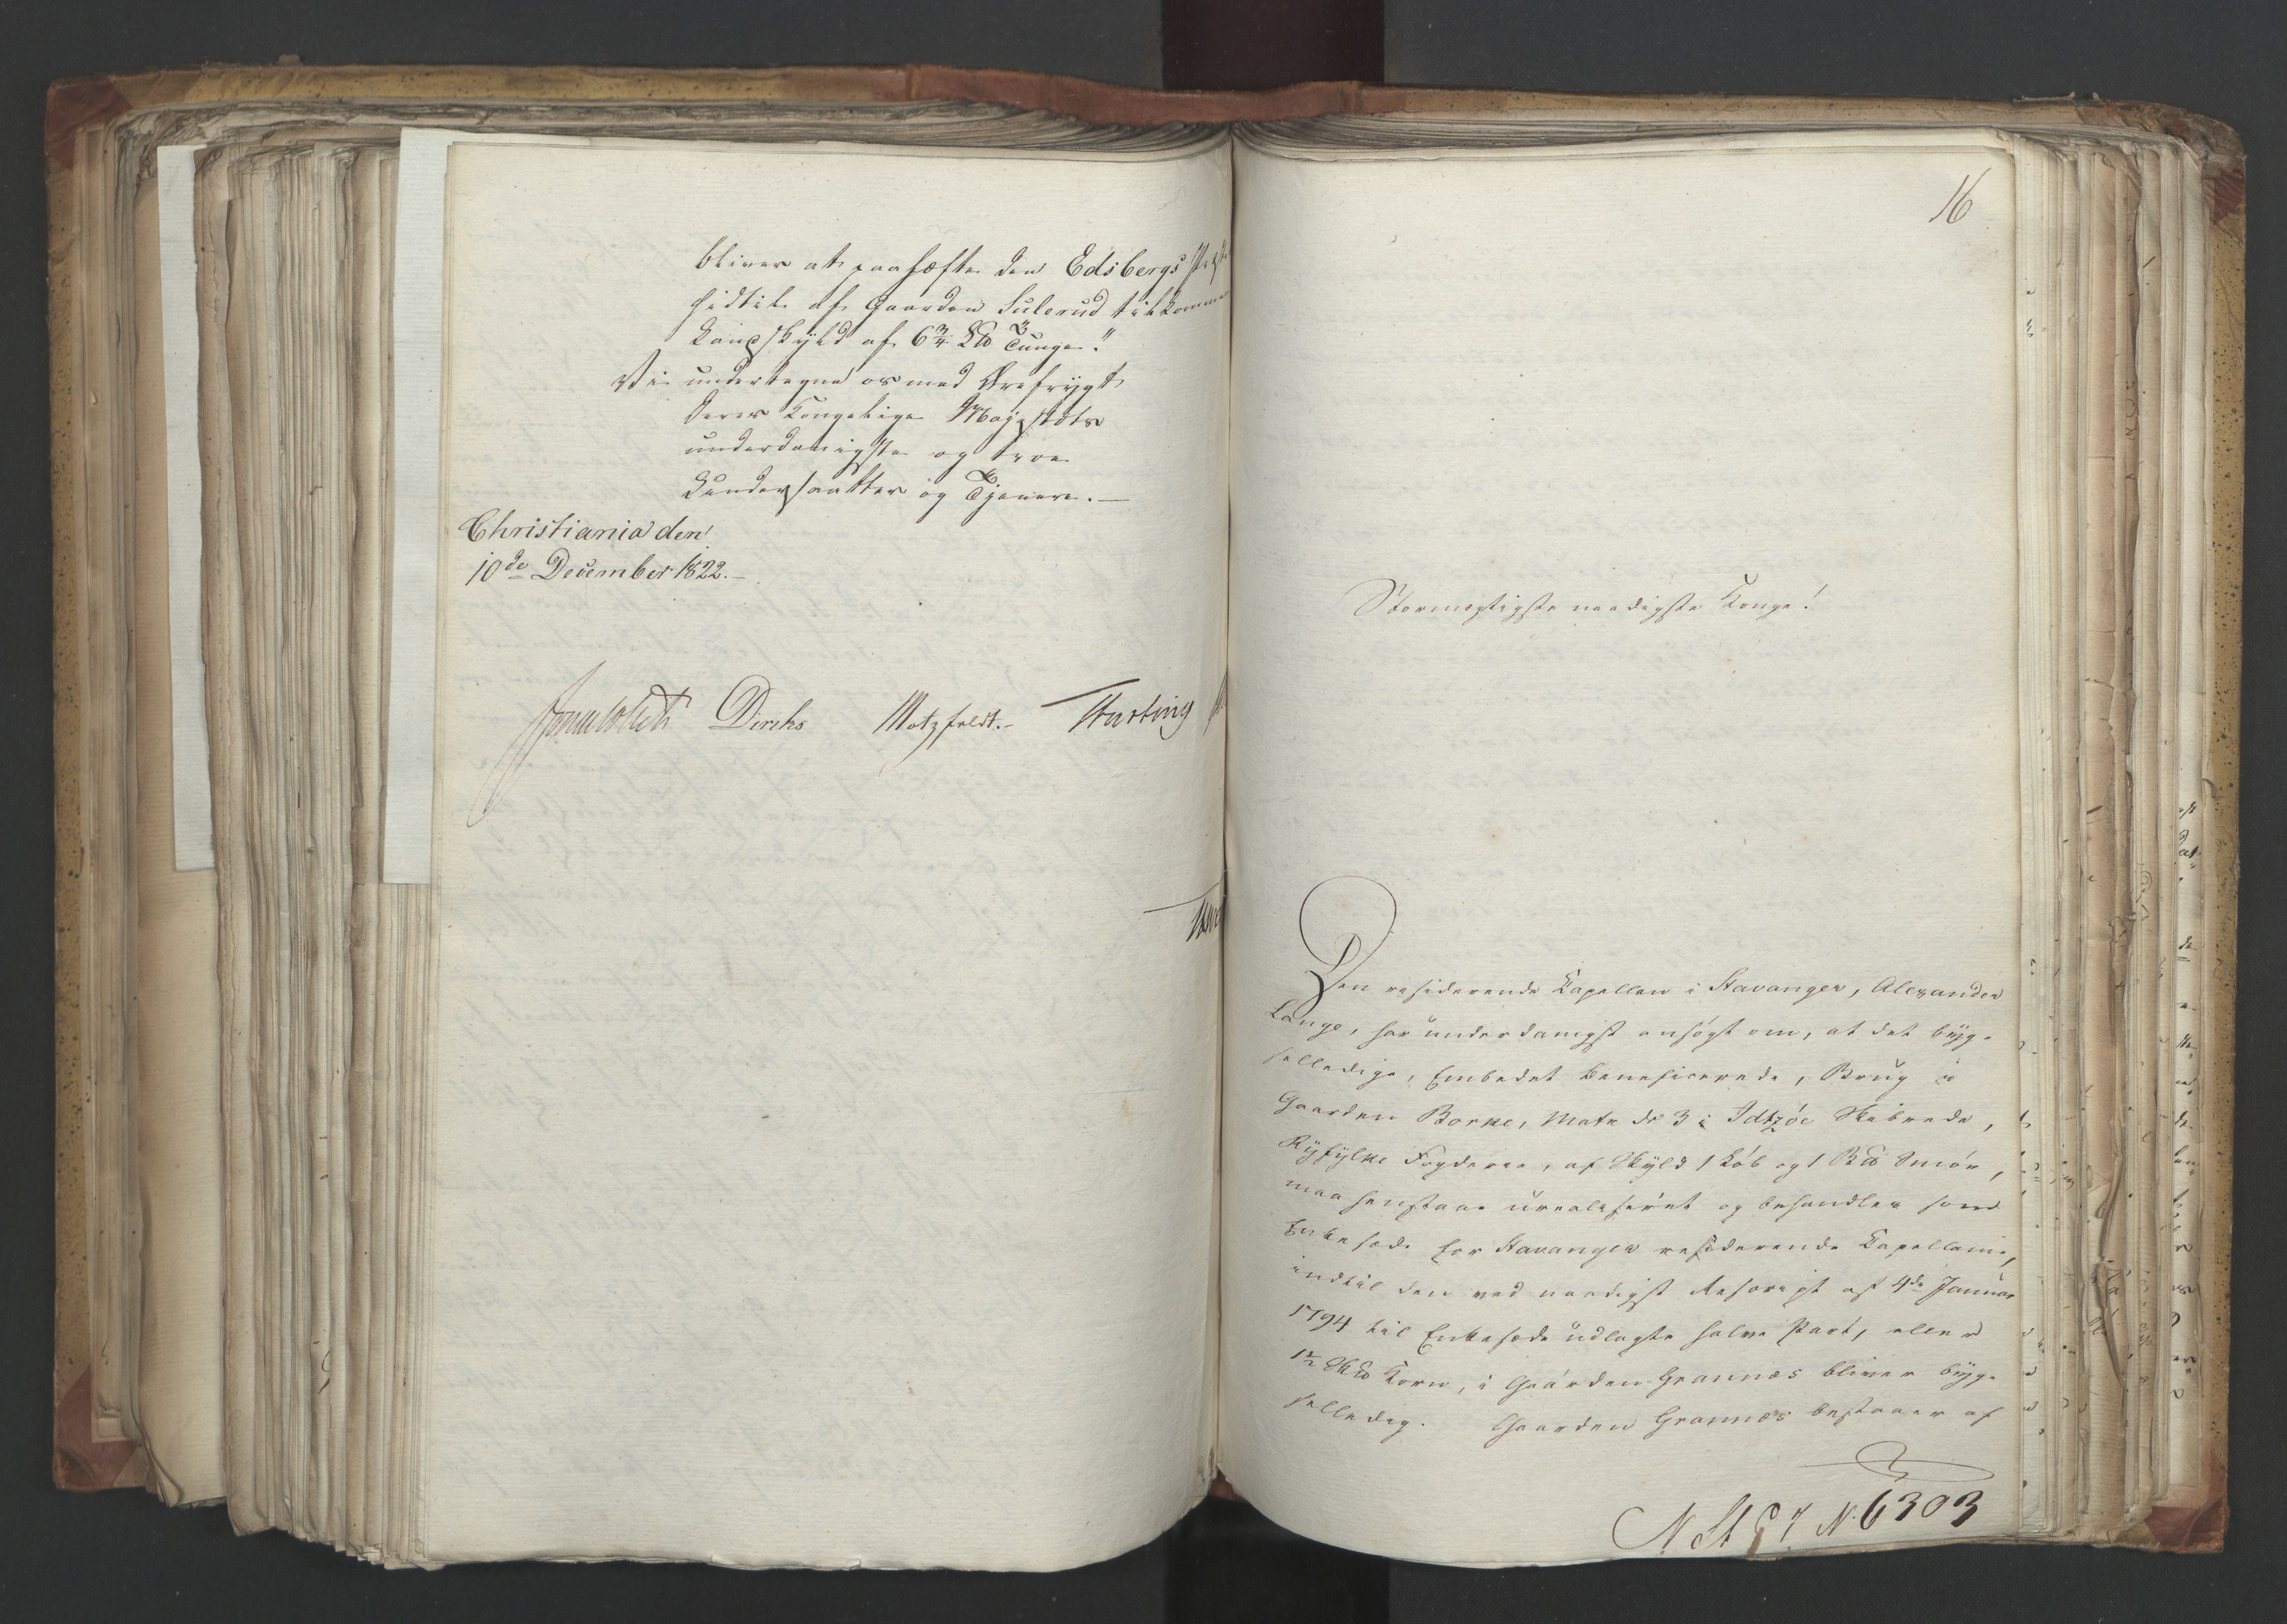 bliver at paahæfte den Edsbergs
hidtil af Gaarden Sulerud tilkommen
Landskyld af 6 3/4 L℔ Tunge."
Vi undertegne os med Ærefrygt
Deres Kongelige Majestæts
underdanigste og troe
Undersaatter og Tjenere.—
Christiania den
10de December 1822.—
Diriks Motzfeldt.—
16
Stormægtigste naadigste Konge!
Den residerende Kapellan i Stavanger, Alexander
Lange, har underdanigst ansøgt om, at det byg-
selledige, Embedet beneficerede, Brug i
Gaarden Borke, Matr. No 3 i Idtzöe Skibrede,
Ryfylke Fogderie, af Skyld 1 Løb og 1 B℔ Smör,
maa henstaae urealiseret og behandles som
Enkesæde for Stavanger residerende Kapellanie,
indtil den ved naadigst Rescript af 4de Januar
1794 til Enkesæde udlagte halve Part, eller
1 1/2 Sk℔ Korn, i Gaarden Grannæs bliver byg-
selledig. Gaarden Grannæs bestaaer af
N. St. C. J. No 6303